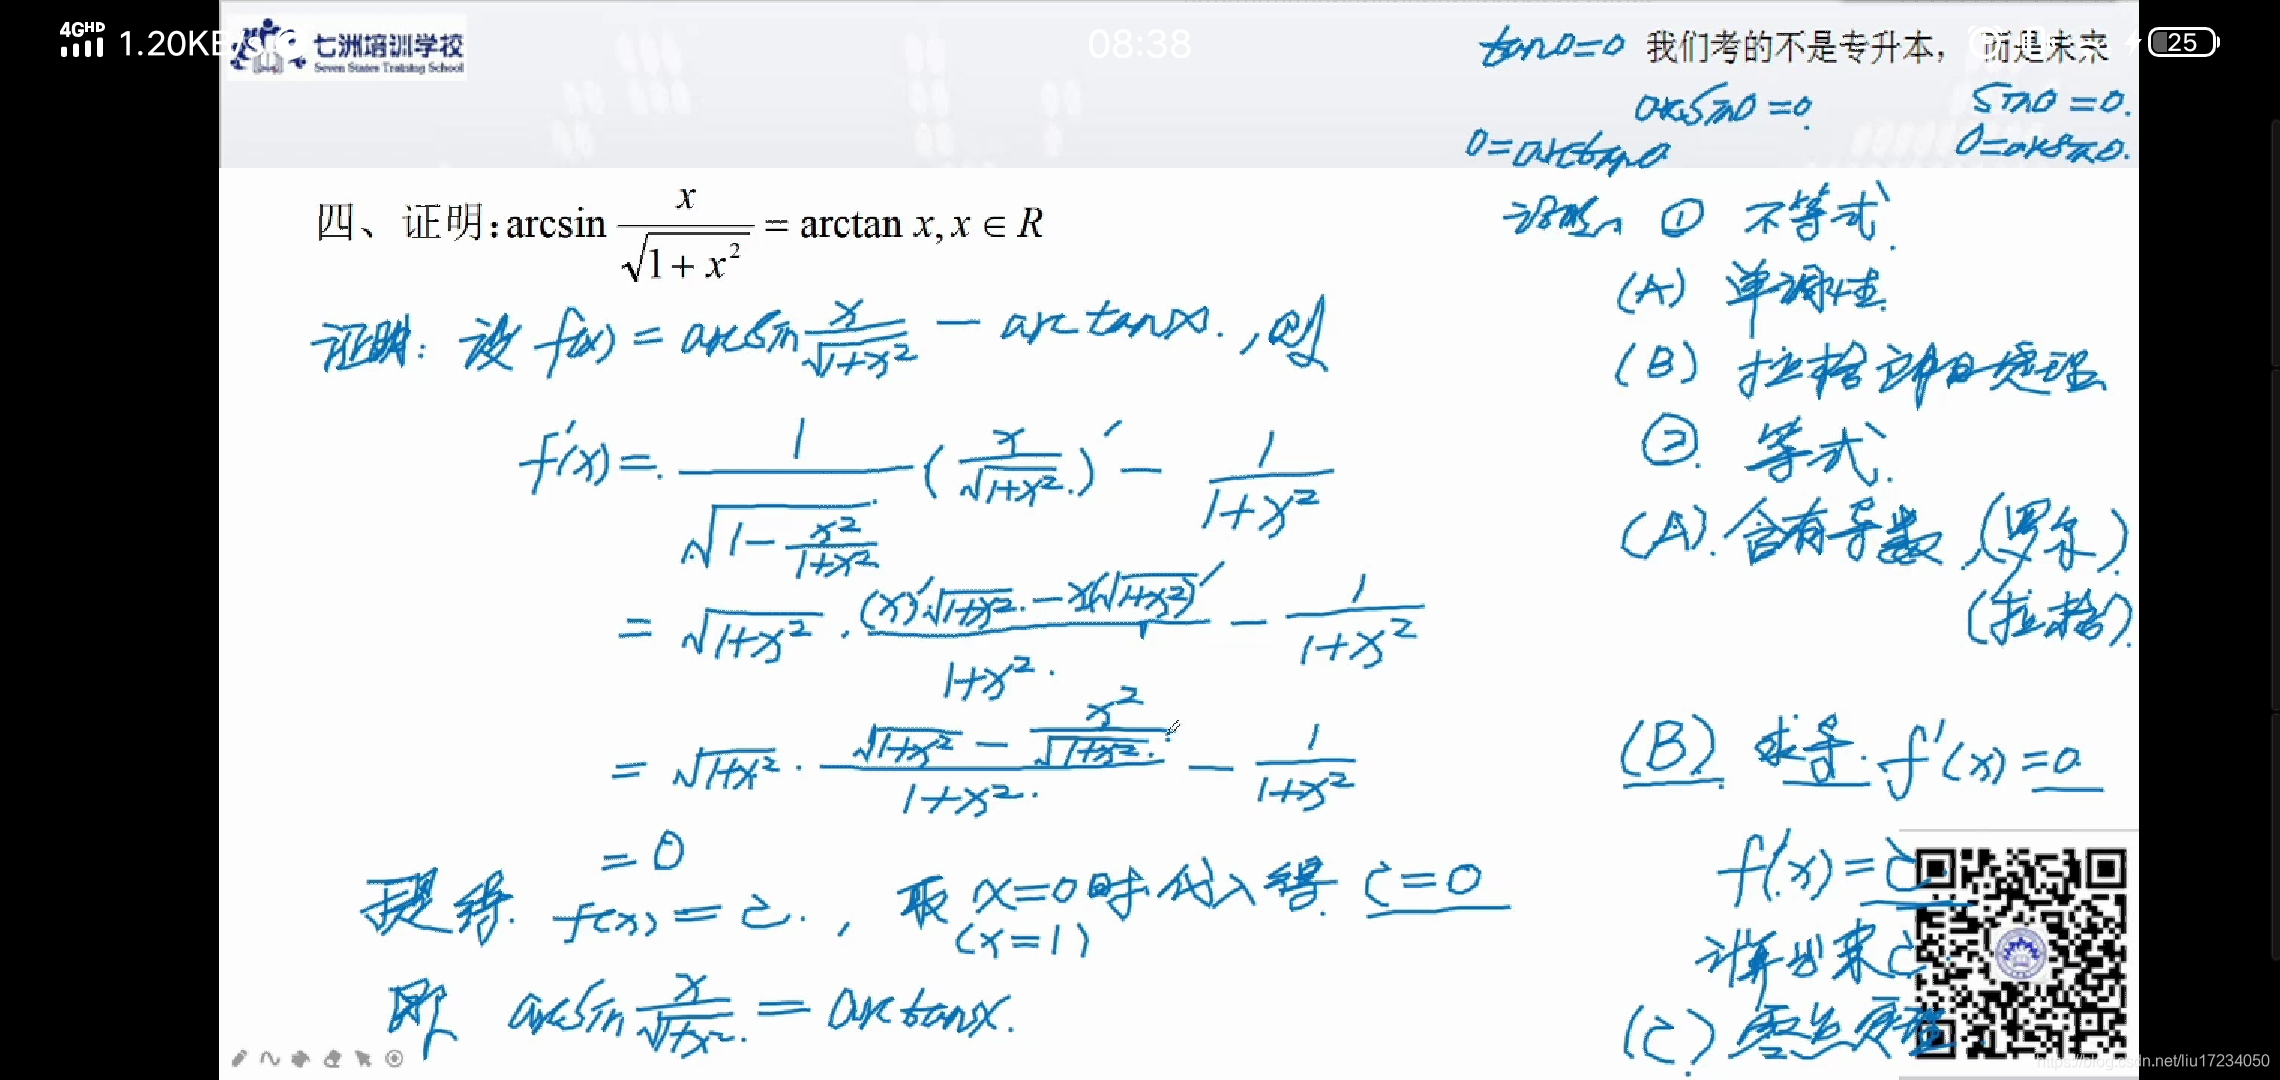 4GHD 1.20KB/s 08:38 25
七洲培训学校
Seven States Training School
我们考的不是专升本， 而是未来
tan0=0
arcsin0=0.
sin0=0.
0=arctan0
0=arcsin0.
四、证明: arcsin x/√(1+x²) = arctan x, x∈R
证明: 设 f(x) = arcsin x/√(1+x²) - arctanx. , 则
f'(x) = 1/√(1 - x²/(1+x²)) (x/√(1+x²))' - 1/(1+x²)
= √(1+x²) · ((x)'√(1+x²) - x(√(1+x²))')/(1+x²) - 1/(1+x²)
= √(1+x²) · (√(1+x²) - x²/√(1+x²))/(1+x²) - 1/(1+x²)
= 0
f(x) = C. , 取 x=0时代入得 C=0
(x=1)
即 arcsin x/√(1+x²) = arctanx.
证明 ① 不等式
(A) 单调性
(B) 拉格朗日定理
② 等式.
(A). 含有导数 (罗尔)
(拉格)
(B) 求导. f'(x)=0
f(x)=C
计算出来C
(C) 零点定理
https://blog.csdn.net/liu17234050